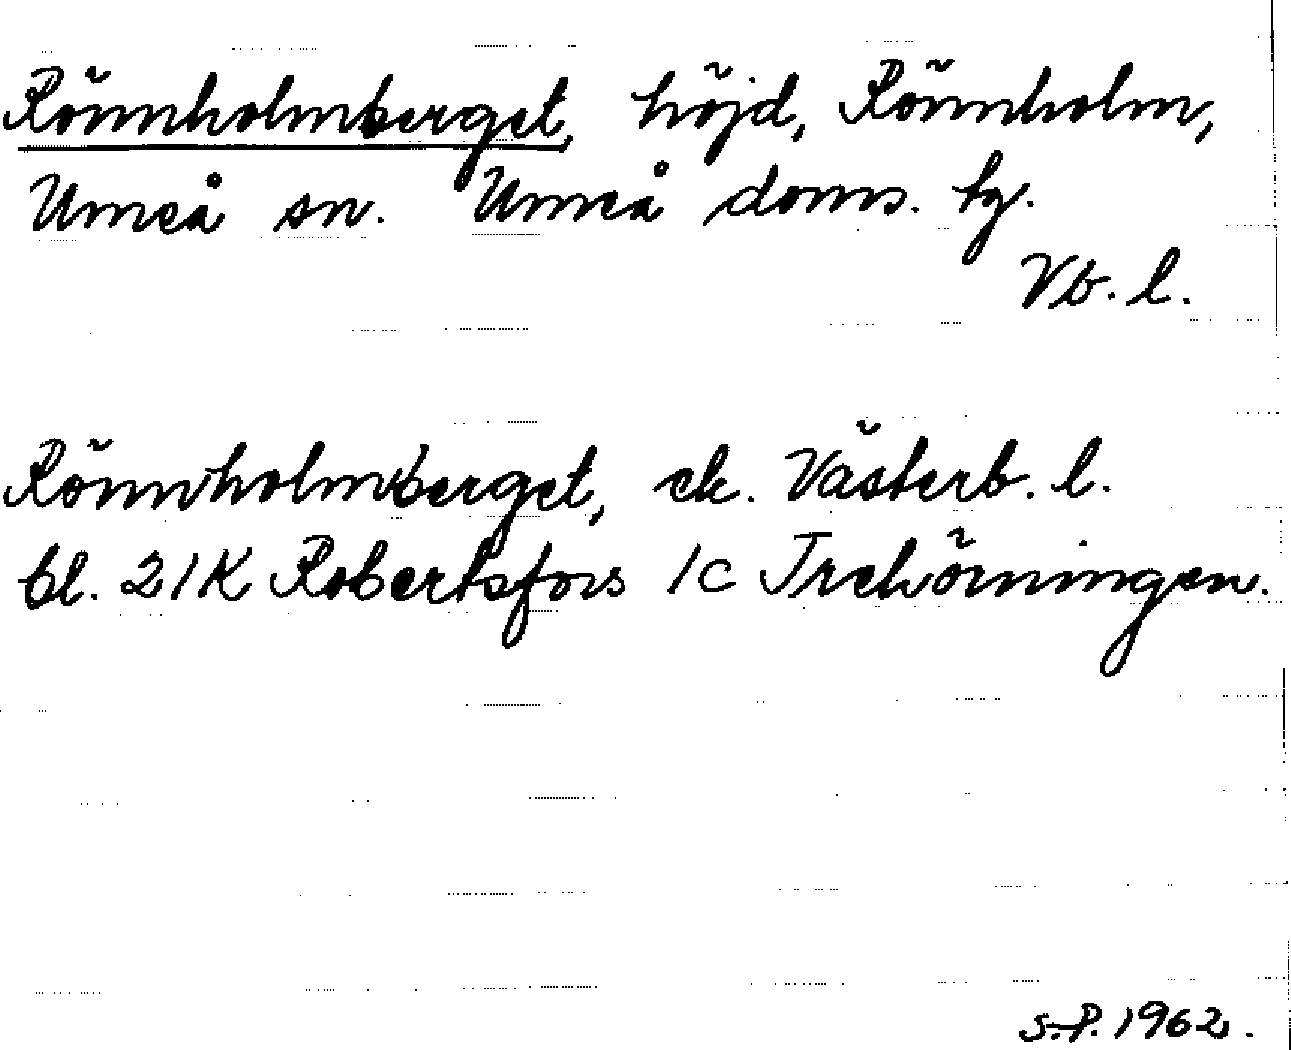 Rönnholmberget, höjd, Rönnholm,
Umeå sn. Umeå doms. tg.
Vb. l.
Rönnholmberget, ek. Västerb. l.
bl. 21K Robertsfors 1c Trehörningen.
S.P. 1962.